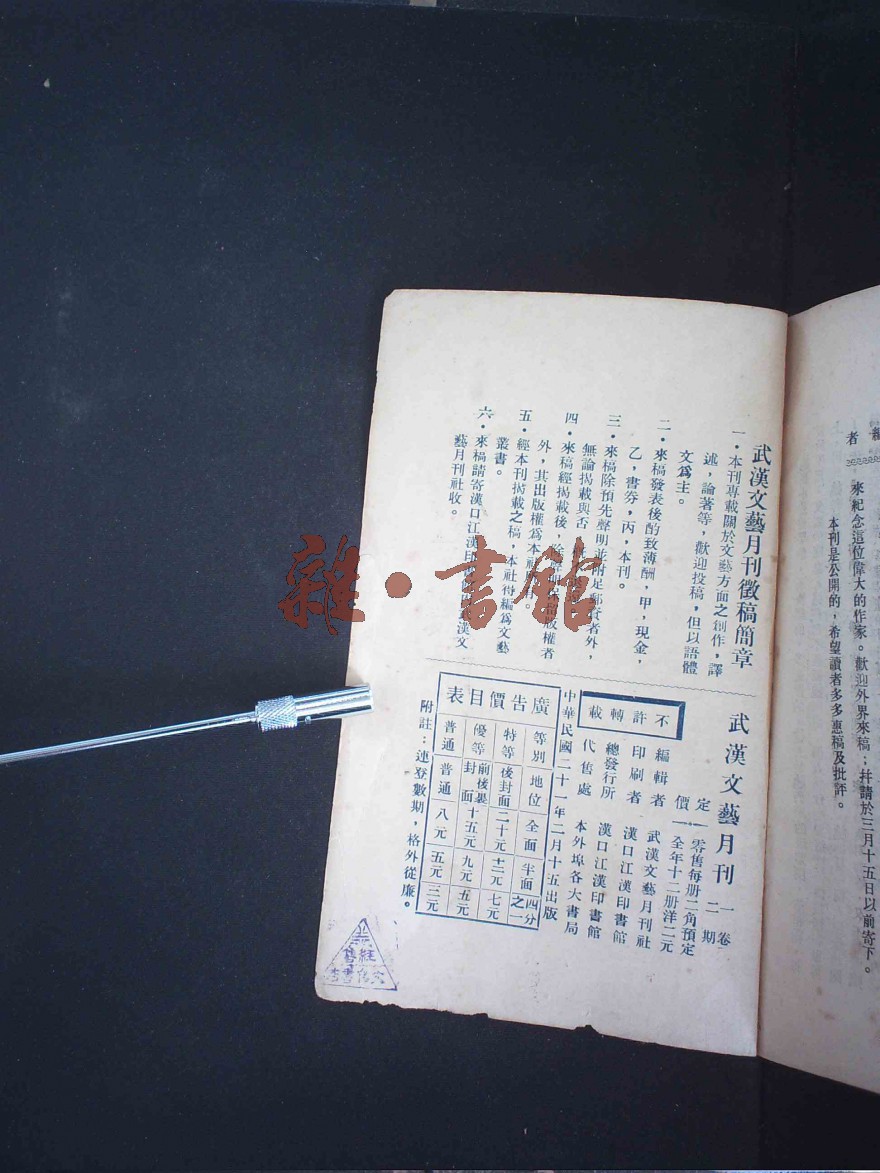 者
來紀念這位偉大的作家。歡迎外界來稿；幷請於三月十五日以前寄下。
本刊是公開的，希望讀者多多惠稿及批評。
武漢文藝月刊徵稿簡章
一・本刊專載關於文藝方面之創作，譯
述，論著等，歡迎投稿，但以語體
文爲主。
二・來稿發表後酌致薄酬，甲，現金，
乙，書券，丙，本刊。
三・來稿除預先聲明並附足郵資者外，
無論揭載與否
四・來稿經揭載後，除
版權者
外，其出版權爲本社
五・經本刊揭載之稿，本社得編爲文藝
叢書。
六・來稿請寄漢口江漢印
漢文
藝月刊社收。
武漢文藝月刊 一卷二期
定價 零售每册二角預定
全年十二册洋二元
編輯者 武漢文藝月刊社
印刷者 漢口江漢印書館
總發行所 漢口江漢印書館
代售處 本外埠各大書局
不許轉載
中華民國二十一年二月十五出版
廣告價目表
等別 地位 全面 半面 四分之一
特等 後封面 二十元 十二元 七元
優等 前後裏封面 十五元 九元 五元
普通 普通 八元 五元 三元
附註：連登數期，格外從廉。
雜・書館